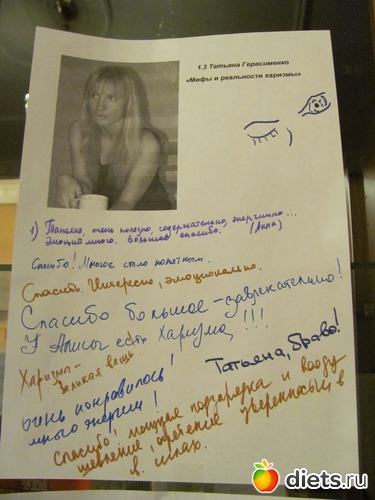 1.3 Татьяна Герасименко
«Мифы и реальности харизмы»
1) Татьяна, очень полезно, содержательно, энергично...
Эмоций много. Большое спасибо. (Анна)
Спасибо! Многое стало понятным.
Спасибо. Интересно, эмоционально.
Спасибо большое - завлекательно!
У Алисы есть Харизма!!!
Харизма -
великая вещь!
Татьяна, браво!
очень понравилось!
много энергии!
Спасибо, мощная подзарядка и вооду
шевление, обретение уверенности в
в силах.
diets.ru